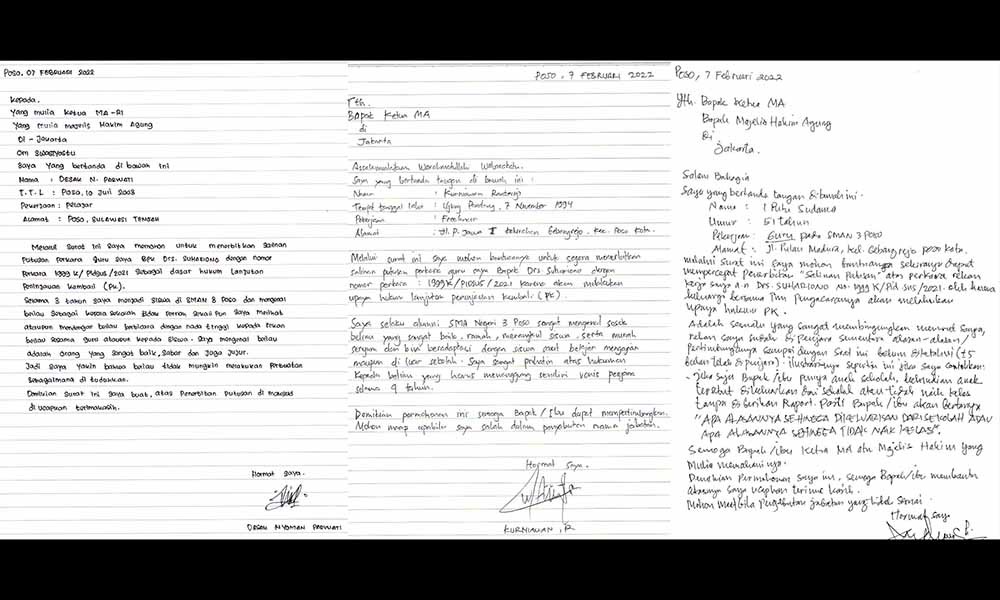 Poso, 07 Februari 2022
Kepada,
Yang mulia Ketua MA-RI
Yang mulia majelis Hakim Agung
Di - Jakarta
Om Swasyastu
Saya Yang bertanda di bawah ini
Nama : Desak N. Parwati
T.T.L : Poso, 10 Juli 2003
Pekerjaan : Pelajar
Alamat : Poso, Sulawesi Tengah
Melalui Surat ini Saya memohon untuk menerbitkan Salinan
Putusan Perkara Guru Saya Bpk Drs. Suhariono dengan nomor
Perkara 1999 K/Pidsus/2021 Sebagai dasar hukum Lanjutan
Peninjauan Kembali (PK).
Selama 3 tahun Saya menjadi Siswa di SMAN 3 Poso dan mengenal
beliau Sebagai Kepala Sekolah tidak Pernah Sekali Pun Saya Melihat
ataupun mendengar beliau berbicara dengan nada tinggi kepada rekan
beliau sesama Guru ataupun kepada Siswa. Saya mengenal beliau
adalah orang yang Sangat baik, Sabar dan Juga Jujur.
Jadi Saya Yakin bahwa beliau tidak Mungkin melakukan Perbuatan
Sebagaimana di tuduhkan.
Demikian Surat ini Saya buat, atas Penerbitan Putusan di maksud
di ucapkan terimakasih.
Hormat Saya.
Desak Nyoman Parwati
Poso, 7 Februari 2022
Yth.
Bapak Ketua MA
di
Jakarta
Assalamualaikum Warahmatullah Wabarakatu.
Saya yang bertanda tangan di bawah ini :
Nama : Kurniawan
Tempat tanggal lahir : Ujung Pandang, 7 November 1994
Pekerjaan : Freelancer
Alamat : Jl. P. Jawa I kelurahan Gebangrejo, Kec. Poso Kota.
Melalui surat ini saya mohon bantuannya untuk segera menerbitkan
salinan putusan perkara guru saya Bapak Drs. Suhariono dengan
nomor perkara : 1999K/PIDSUS/2021 karena akan melakukan
upaya hukum lanjutan peninjauan kembali (PK).
Saya selaku alumni SMA Negeri 3 Poso sangat mengenal sosok
beliau yang sangat baik, ramah, merangkul siswa, serta murah
senyum dan bisa beradaptasi dengan siswa saat belajar mengajar
maupun di luar sekolah. Saya sangat prihatin atas hukuman
kepada beliau yang harus menanggung sendiri vonis penjara
selama 9 tahun.
Demikian permohonan ini semoga Bapak/Ibu dapat mempertimbangkan.
Mohon maaf apabila saya salah dalam penyebutan nama jabatan.
Hormat Saya.
KURNIAWAN .R
Poso, 7 Februari 2022
Yth. Bapak Ketua MA
Bapak Majelis Hakim Agung
Di
Jakarta.
Salam Bahagia
Saya yang bertanda tangan di bawah ini :
Nama : I Putu Sudana
Umur : 51 tahun
Pekerjaan : Guru pada SMAN 3 Poso
Alamat : Jl. Pulau Madura, kel. Gebangrejo Poso Kota.
melalui surat ini saya mohon bantuannya sekiranya dapat
mempercepat Penerbitan "Salinan Putusan" atas perkara rekan
kerja saya a.n Drs. SUHARIONO No. 1999 K/Pid Sus/2021. oleh karena
keluarga bersama Tim Pengacaranya akan melakukan
upaya hukum PK.
Adalah sesuatu yang sangat membingungkan menurut saya,
rekan saya sudah di penjara sementara alasan-alasan/
Pertimbangannya sampai dengan saat ini belum diketahui (±5
bulan telah dipenjara). ilustrasinya seperti ini jika saya contohkan:
"Jika saja Bapak/ibu punya anak sekolah, kemudian anak
tersebut dikeluarkan dari sekolah atau tidak naik kelas
tanpa diberikan Raport. Pasti Bapak/ibu akan bertanya
"APA ALASANNYA SEHINGGA DIKELUARKAN DARI SEKOLAH ATAU
APA ALASANNYA SEHINGGA TIDAK NAIK KELAS".
Semoga Bapak/ibu Ketua MA atau Majelis Hakim yang
Mulia memahaminya.
Demikian Permohonan saya ini, semoga Bapak/ibu membantu
akannya saya ucapkan terima kasih.
Mohon Maaf bila Penyebutan jabatan yang tidak sesuai.
Hormat saya